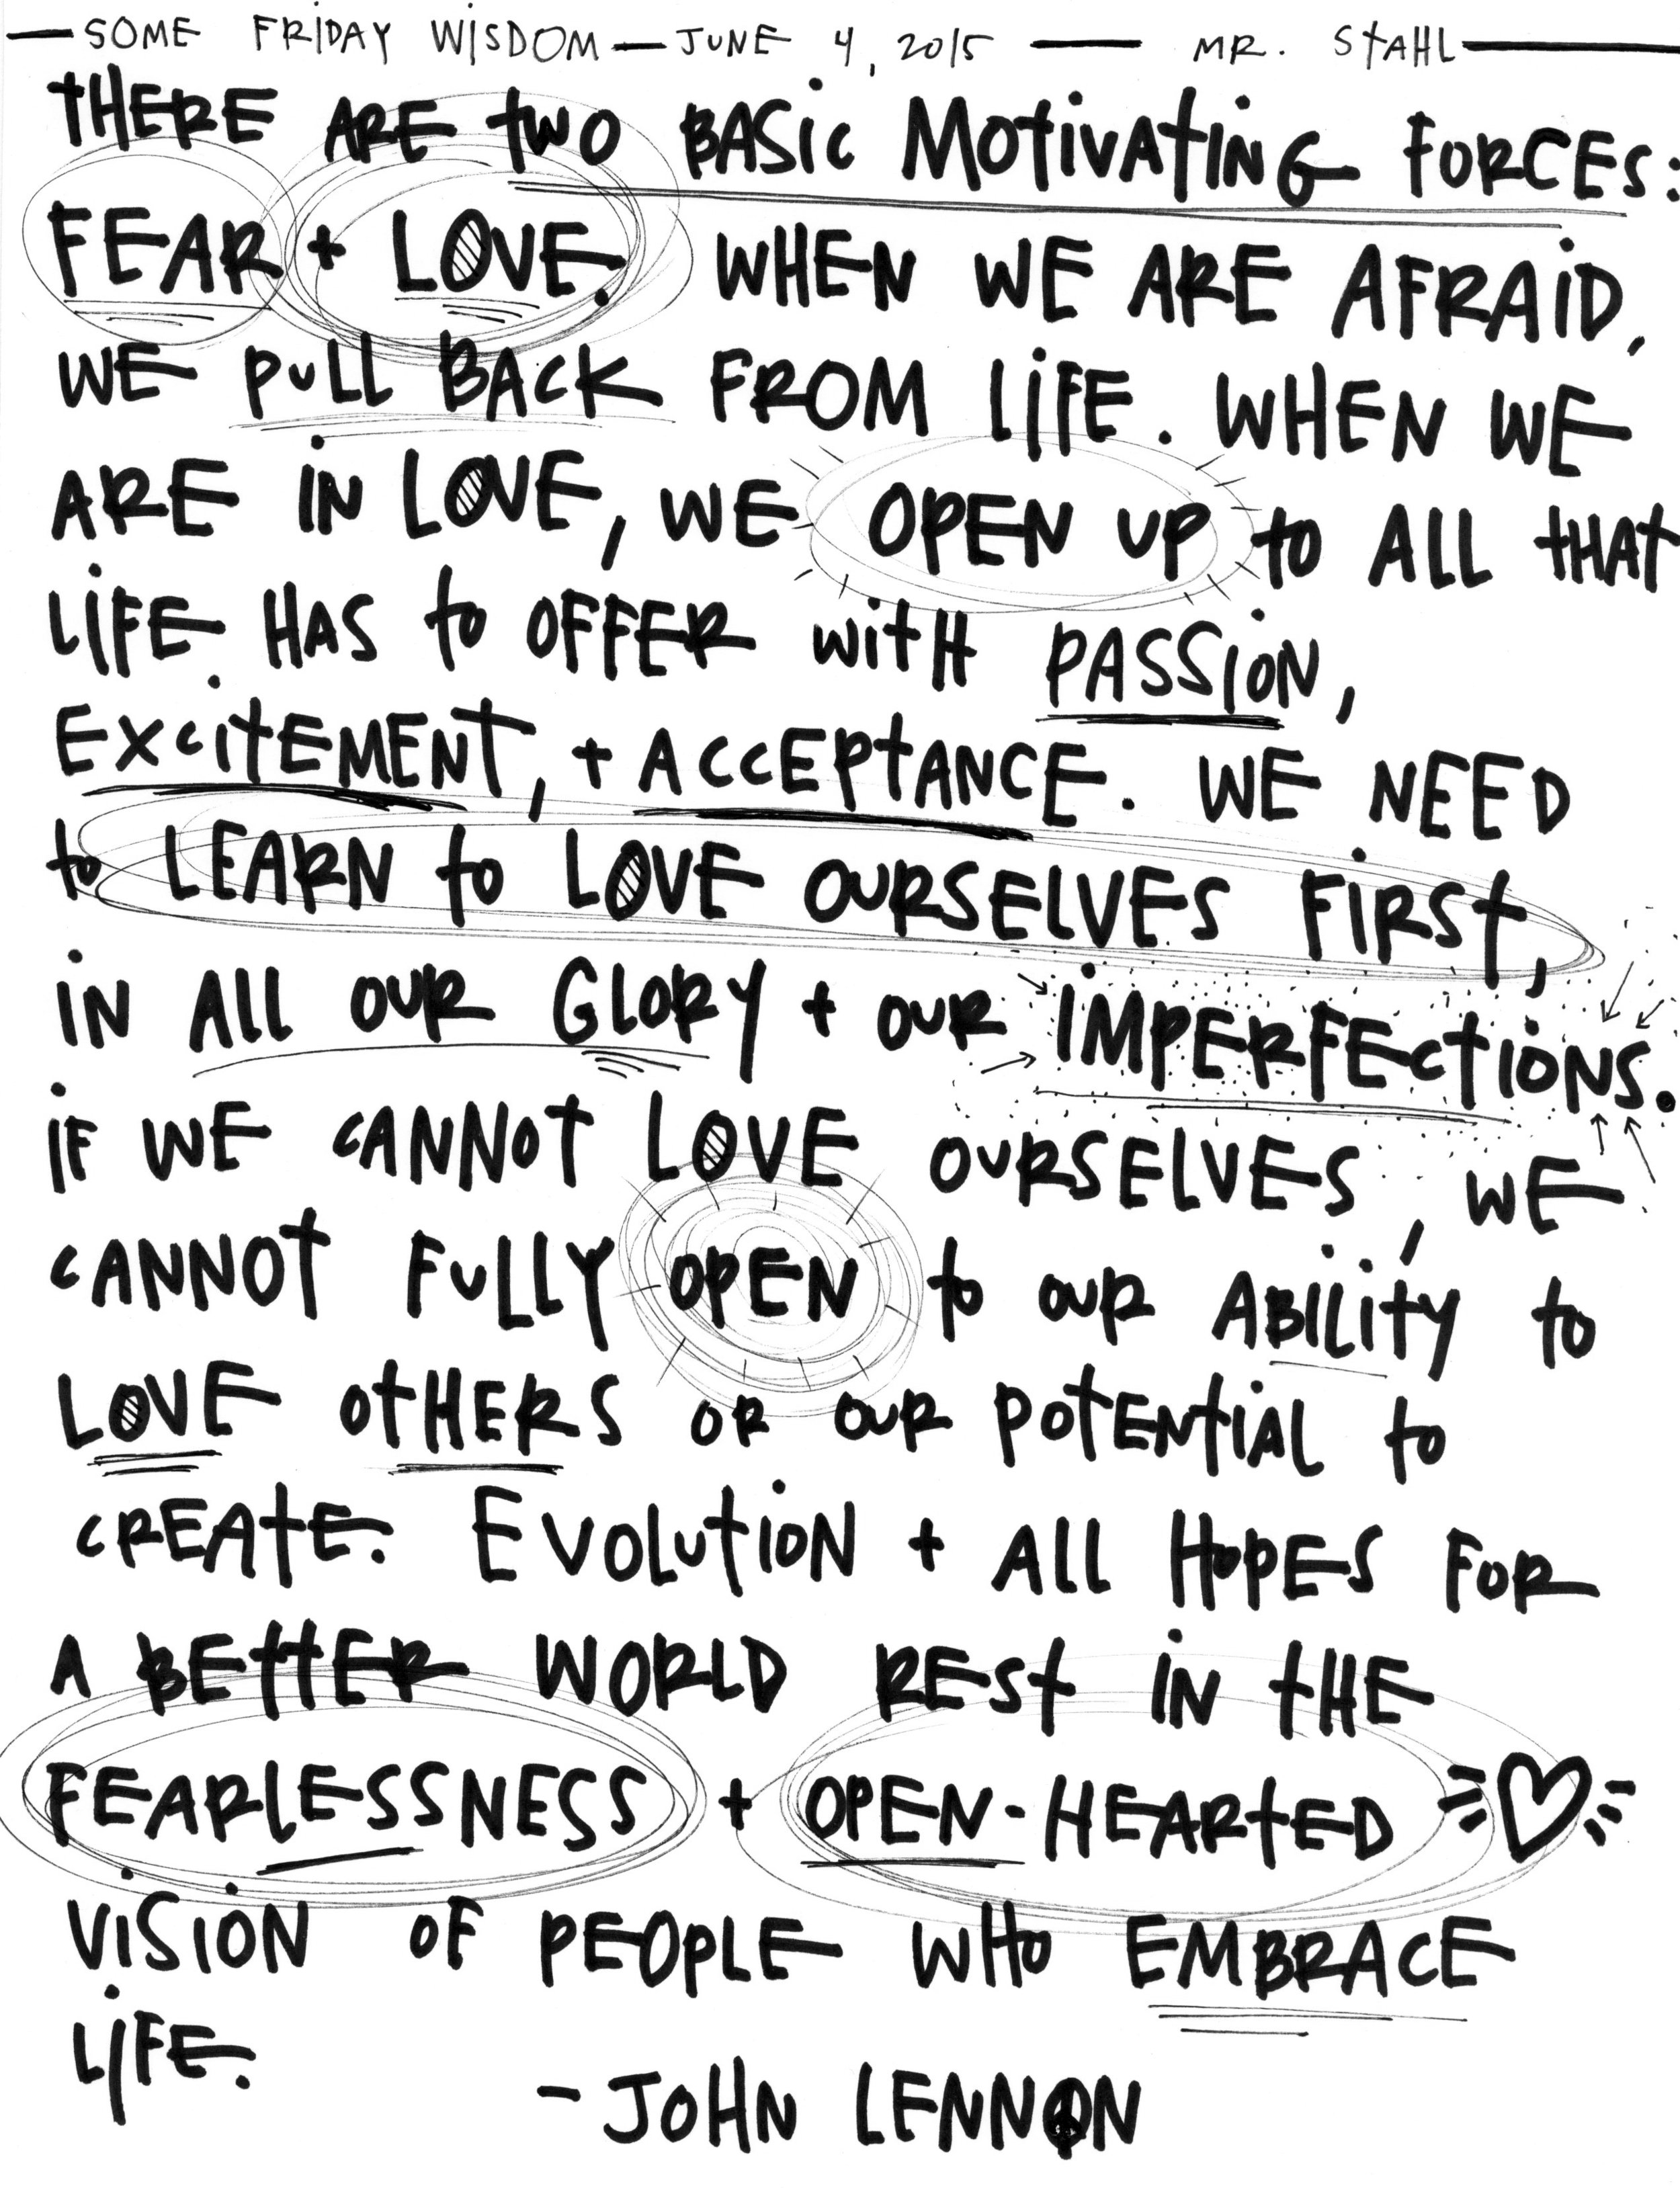 —SOME FRIDAY WISDOM—JUNE 4, 2015 — MR. STAHL—
THERE ARE TWO BASIC MOTIVATING FORCES:
FEAR + LOVE. WHEN WE ARE AFRAID,
WE PULL BACK FROM LIFE. WHEN WE
ARE IN LOVE, WE OPEN UP TO ALL THAT
LIFE HAS TO OFFER WITH PASSION,
EXCITEMENT, + ACCEPTANCE. WE NEED
TO LEARN TO LOVE OURSELVES FIRST,
IN ALL OUR GLORY + OUR IMPERFECTIONS.
IF WE CANNOT LOVE OURSELVES, WE
CANNOT FULLY OPEN TO OUR ABILITY TO
LOVE OTHERS OR OUR POTENTIAL TO
CREATE. EVOLUTION + ALL HOPES FOR
A BETTER WORLD REST IN THE
FEARLESSNESS + OPEN-HEARTED
VISION OF PEOPLE WHO EMBRACE
LIFE.
-JOHN LENNON